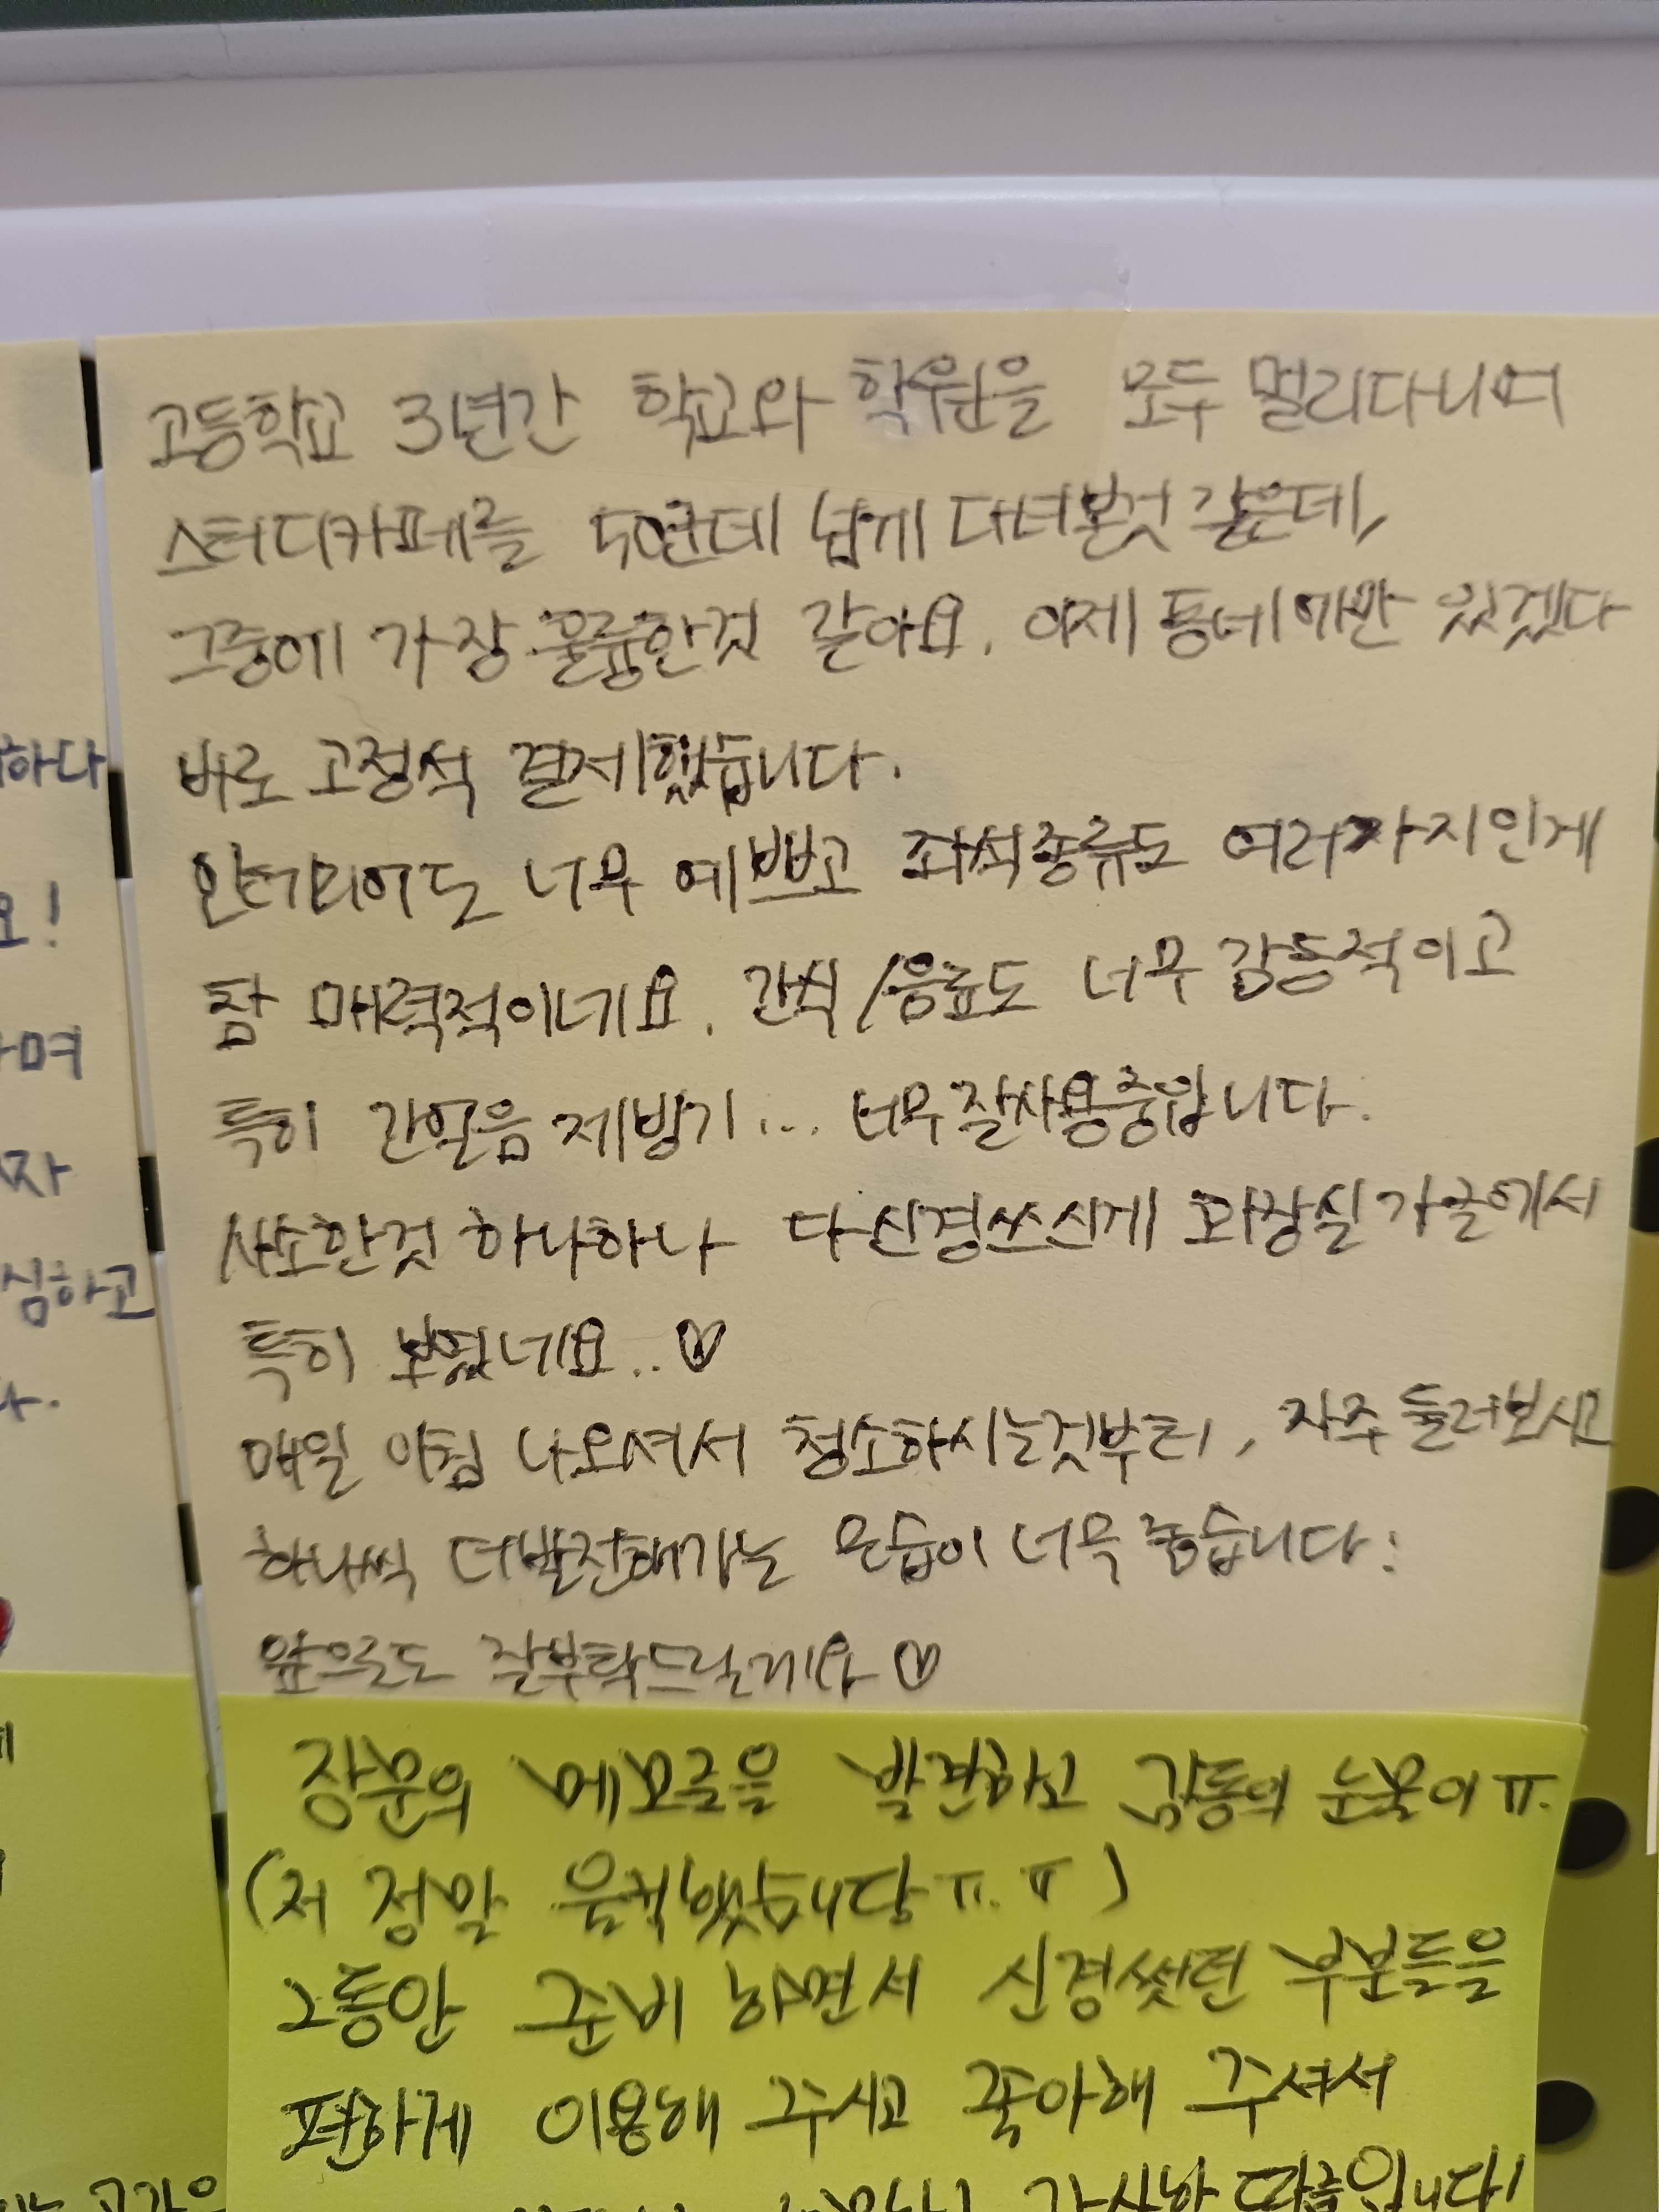 고등학교 3년간 학교와 학원을 모두 멀리다니며
스터디카페를 50군데 넘게 다녀본것 같은데,
그중에 가장 훌륭한것 같아요. 이제 동네에만 있겠다
바로 고정석 결제했습니다.
인테리어도 너무 예쁘고 좌석종류도 여러가지인게
참 매력적이네요. 간식/음료도 너무 감동적이고
특히 간얼음 제빙기... 너무잘사용중입니다.
사소한것 하나하나 다신경쓰신게 화장실가글에서
특히 보였네요.. ♡
매일 아침 나오셔서 청소하시는것부터, 자주 둘러보시고
하나씩 더발전해가는 모습이 너무 좋습니다:
앞으로도 잘부탁드릴게요 ♡
장문의 메모를을 발견하고 감동의 눈물이 ㅠ.
(저 정말 움찍했습니당 ㅠ.ㅠ)
그동안 준비 하면서 신경썼던 부분들을
편하게 이용해 주시고 좋아해 주셔서
감사할 따름입니다!
하다
요!
하며
심하고
다.